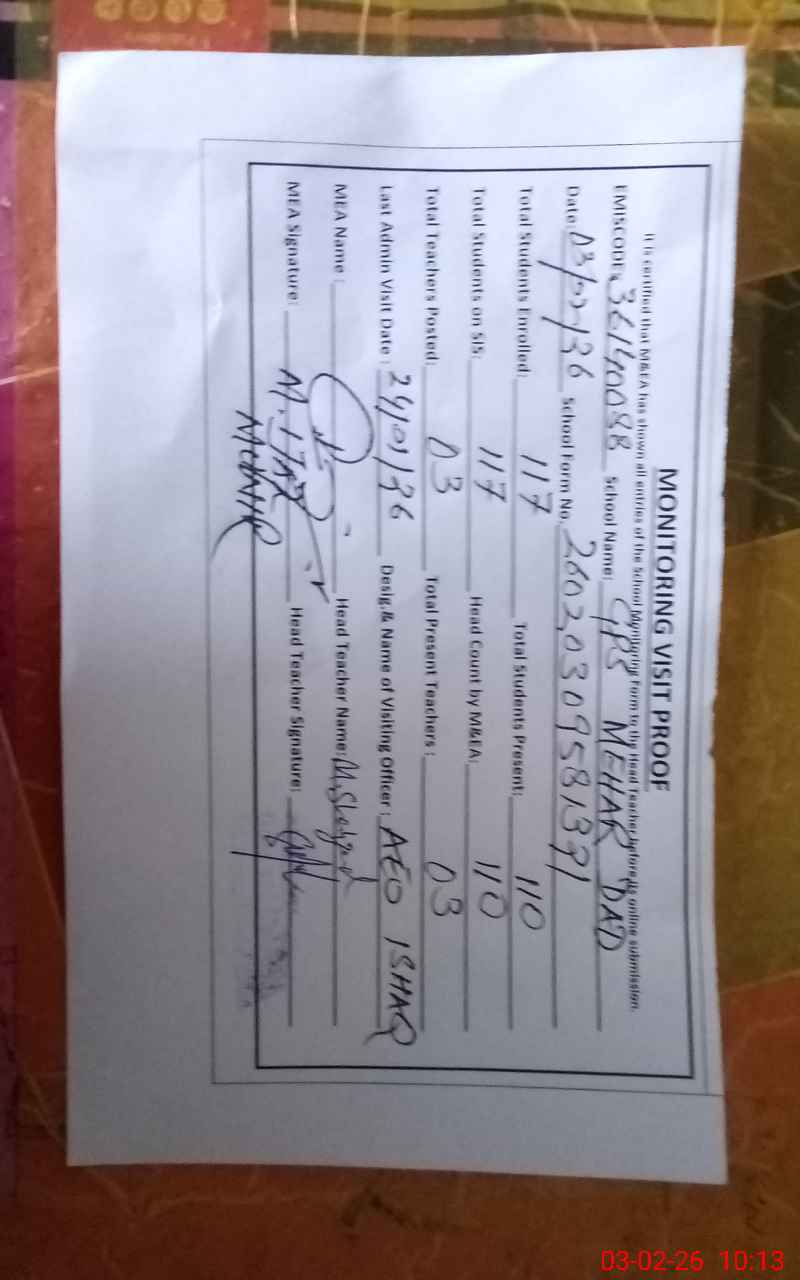 MONITORING VISIT PROOF
It is certified that M&EA has shown all entries of the School Monitoring Form to the Head Teacher before its online submission.
EMISCODE: 36140088 School Name: GPS MEHAR DAD
Date: 03/02/26 School Form No. 26020309581391
Total Students Enrolled: 117 Total Students Present: 110
Total Students on SIS: 117 Head Count by M&EA: 110
Total Teachers Posted: 03 Total Present Teachers : 03
Last Admin Visit Date : 24/01/26 Desig.& Name of Visiting Officer : AEO ISHAQ
MEA Name : Head Teacher Name: M.Shahzad
MEA Signature: Head Teacher Signature:
03-02-26 10:13